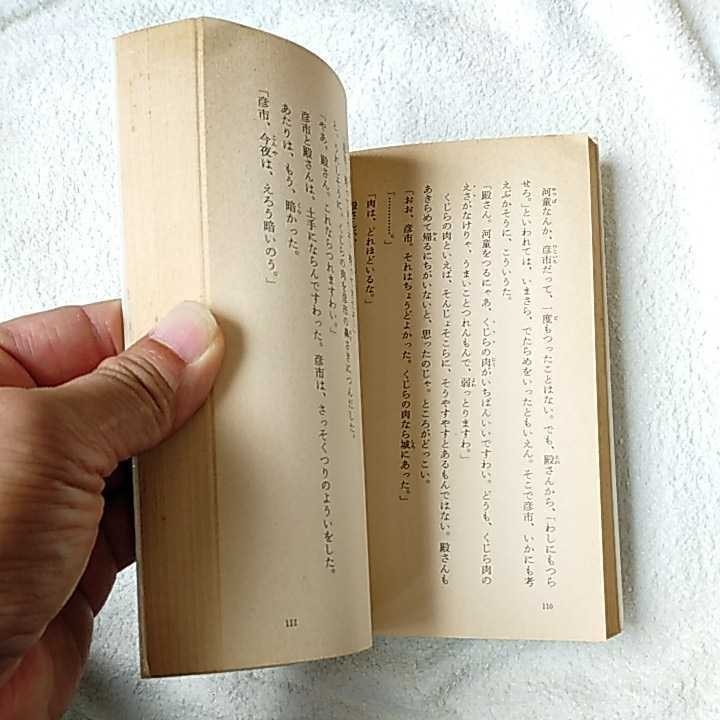 河童なんか、彦市だって、一度もつったことはない。でも、殿さんから、「わしにもつら
せろ。」といわれては、いまさら、でたらめをいったともいえん。そこで彦市、いかにも考
えぶかそうに、こういうた。
「殿さん。河童をつるにゃあ、くじらの肉がいちばんいいですわい。どうも、くじら肉の
えさがなけりゃ、うまいことつれんもんで、弱っとりますわ。」
くじらの肉といえば、そんじょそこらに、そうやすやすとあるもんではない。殿さんも
あきらめて帰るにちがいないと、思ったのじゃ。ところがどっこい。
「おお、彦市。それはちょうどよかった。くじらの肉なら城にあった。」
「…………。」
「肉は、どれほどいるな。」
110
くじらの肉を彦市の鼻さきにつんだした。
「やあ、殿さん。これならつれますわい。」
彦市と殿さんは、土手にならんですわった。彦市は、さっそくつりのよういをした。
あたりは、もう、暗かった。
「彦市、今夜は、えろう暗いのう。」
111